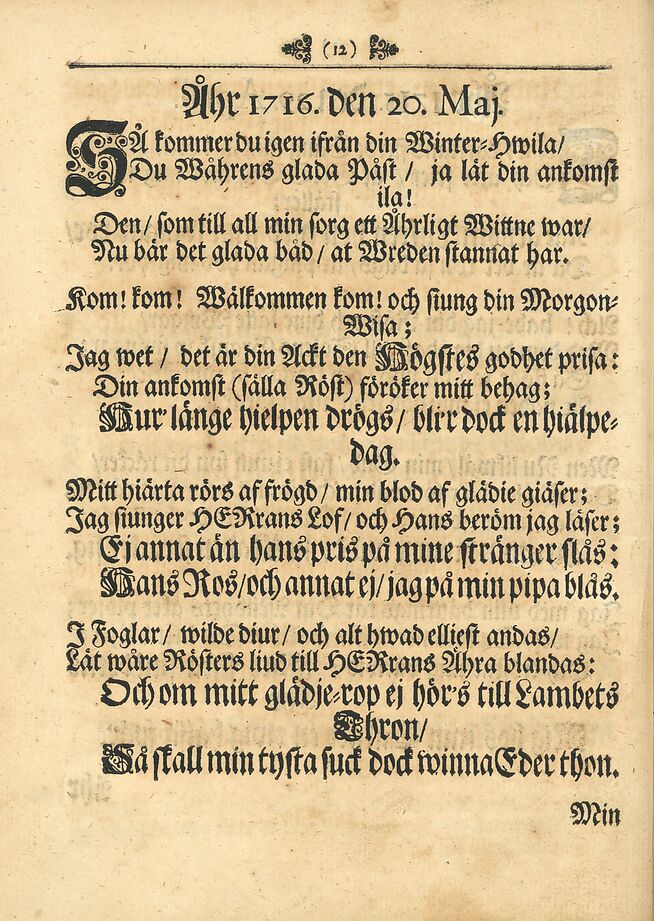 (12)
Åhr 1716. den 20. Maj.
SÅ kommer du igen ifrån din Winter-Hwila/
Du Wåhrens glada Påst / ja lät din ankomst
ila!
Den/ som till all min sorg ett Åhrligt Wittne war/
Nu bär det glada båd/ at Wreden stannat har.
Kom! kom! Wälkommen kom! och siung din Morgon-
Wisa;
Jag wet / det är din Ackt den Högstes godhet prisa:
Din ankomst (sälla Röst) föröker mitt behag;
Hur' länge hielpen drögs/ bli'r dock en hiälpe-
dag.
Mitt hiärta rörs af frögd/ min blod af glädie giäser;
Jag siunger HERrans Lof/ och Hans beröm jag läser;
Ej annat än hans pris på mine stränger slås:
Hans Ros/och annat ej/ jag på min pipa blås.
I Foglar/ wilde diur/ och alt hwad elliest andas/
Låt wåre Rösters liud till HERrans Ähra blandas:
Och om mitt glädje-rop ej hör's till Lambets
Thron/
Så skall min tysta suck dock winna Eder thon.
Min